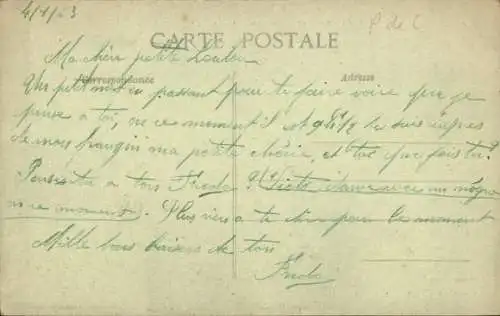 4/1/23
P de C
CARTE POSTALE
Ma chère petite Loulou
Correspondance
Adresse
Un petit mot en passant pour te faire voire que je
pense a toi, en ce moment il 9h 1/2 je suis
de mon frangin ma petite chérie, et toi que fais tu?
Penses tu a ton Frede?
en ce moment. Plus rien a te dire pour le moment
Mille bons baisers de ton
Frede